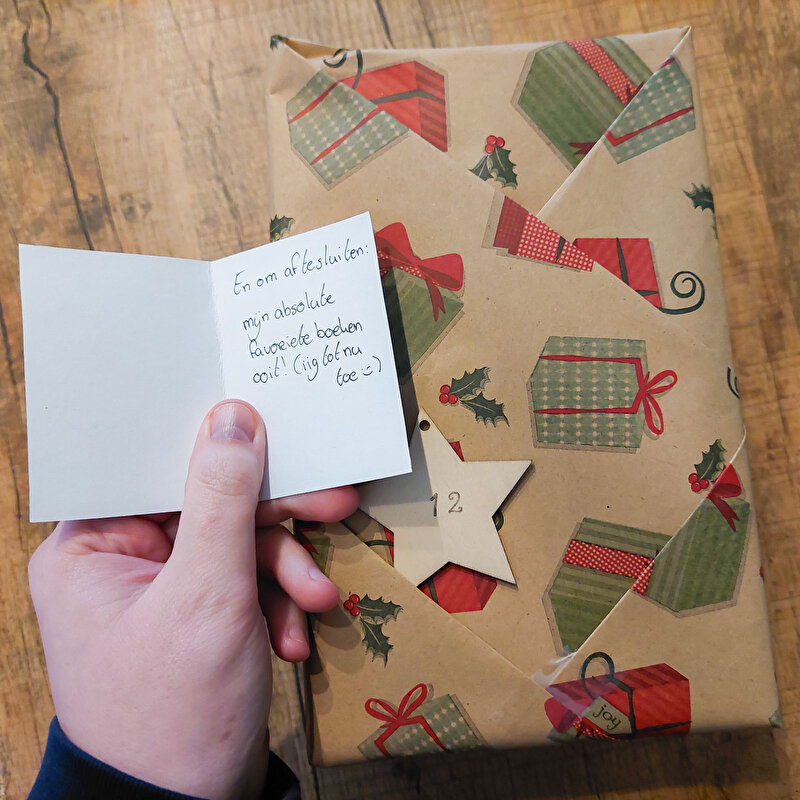 En om af te sluiten:
mijn absolute
favoreiete boeken
ooit! (iig tot nu
toe :)
12
joy